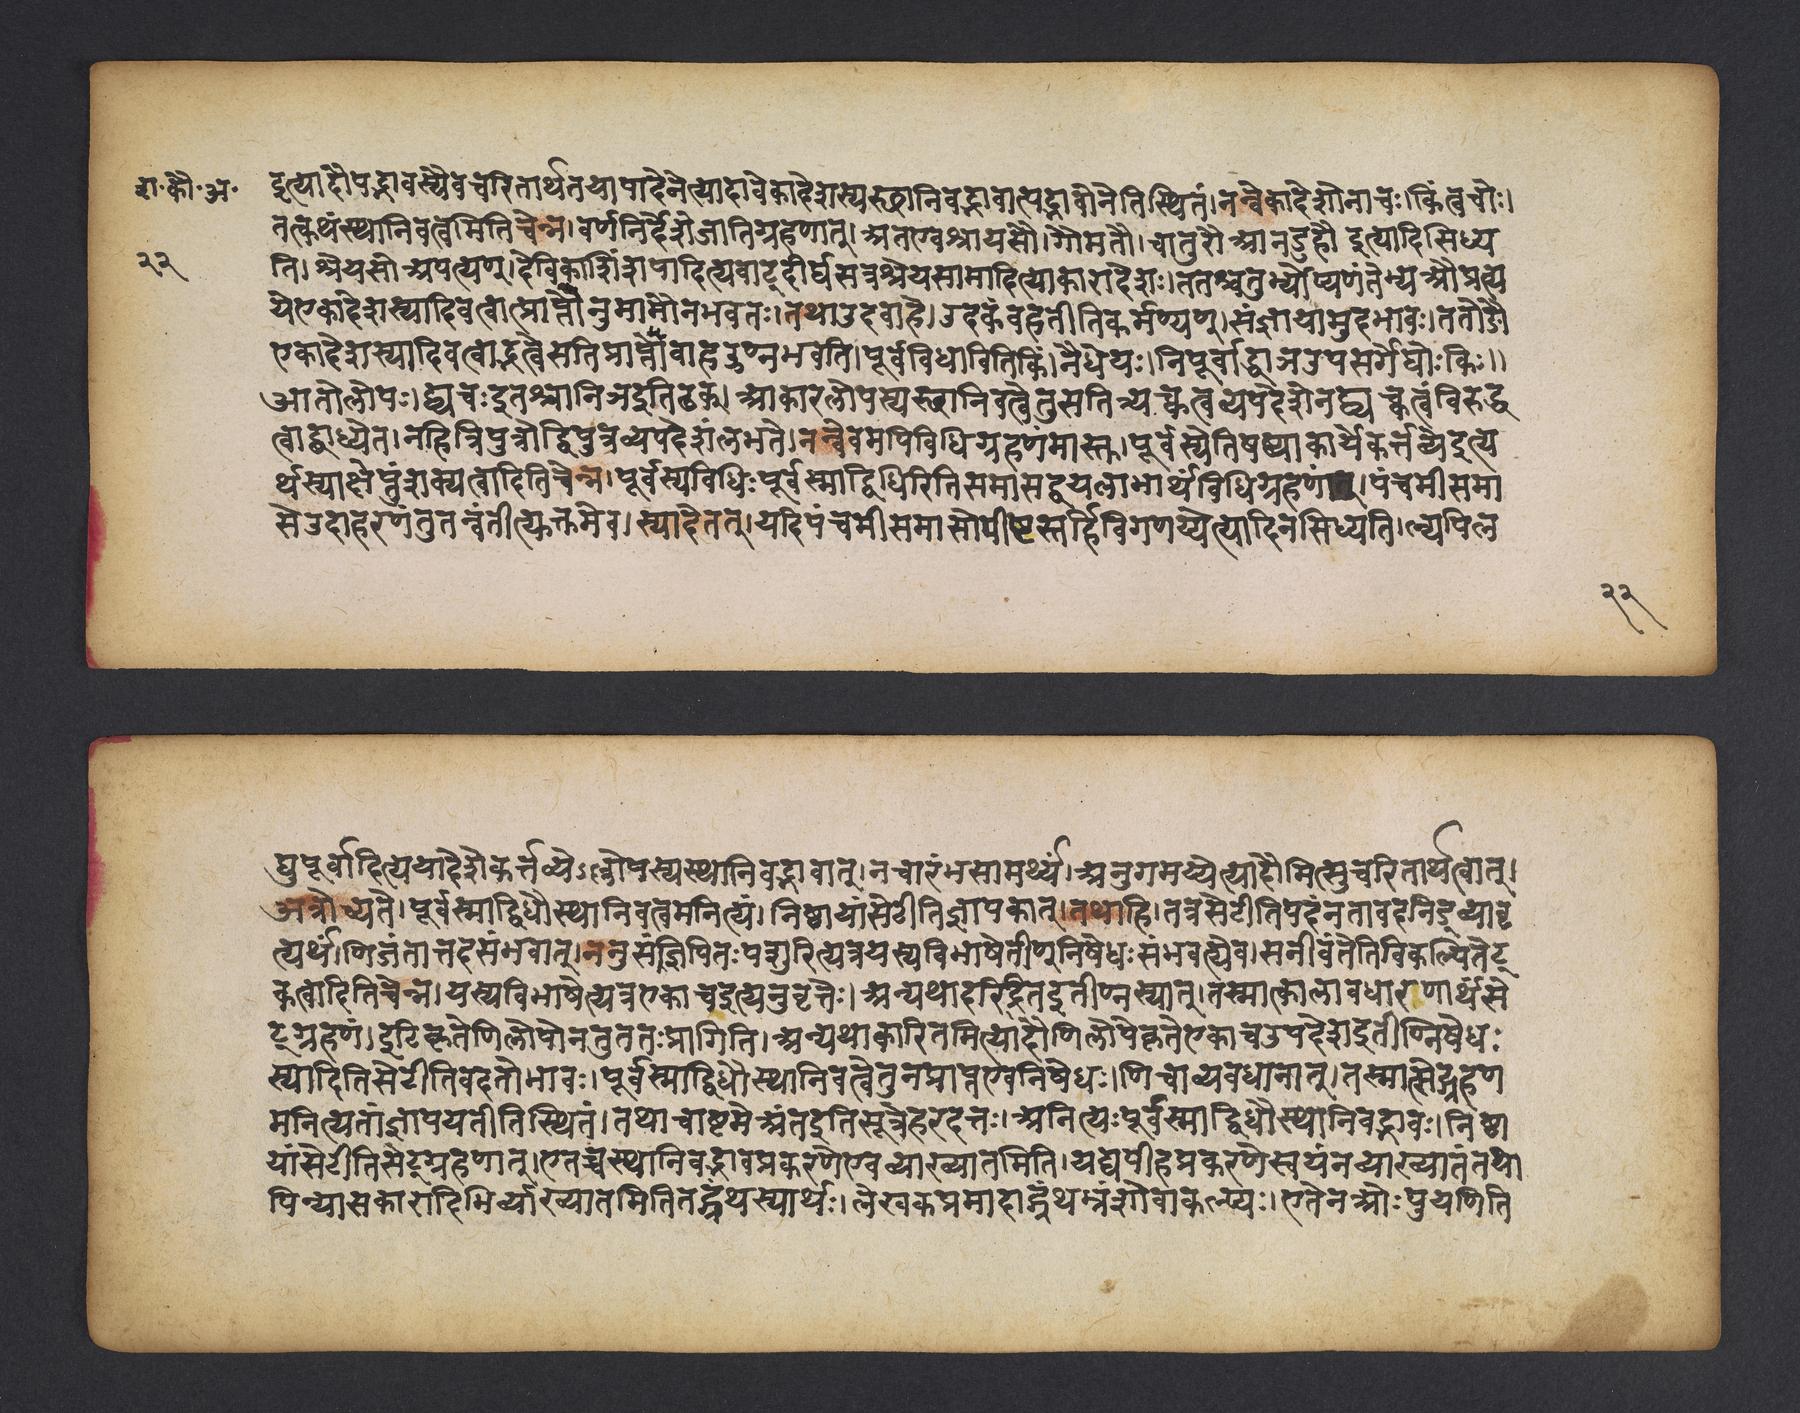 श॰ कौ॰ अ॰
२२
इत्यादौ पद्भावस्यैव चरितार्थतया पादेनेत्यादावेकादेशस्य स्थानिवद्भावात्पद्भावो नेति स्थितं। नन्वेकादेशो नाचः। किं त्वचोः।
तत्कथं स्थानिवत्वमिति चेन्न। वर्णनिर्देशे जातिग्रहणात्। अतएव श्रायसौ। गौमतौ। चातुरौ आनडुहौ इत्यादि सिध्य
ति। श्रेयसो अपत्येण्। देविकाशिंशपादित्यवाट्दीर्घसत्रश्रेयसामादित्याकारादेशः। ततश्चतुर्भ्योप्यणंतेभ्य औ प्रत्य
ये एकादेशस्यादिवत्वात्प्राप्तौ नुमामौ न भवतः। तथा उदवाहे। उदकं वहतीति कर्मण्यण्। संज्ञायामुदभावः। ततो ङौ
एकादेशस्यादिवत्वाद्भत्वे सति प्राप्तो वाह ऊण्न भवति। पूर्वविधाविति किं। नैधेयः। निपूर्वाद्धाञ उपसर्गे घोः किः॥
आतो लोपः। द्व्यचः इतश्चानिञ इति ढक्। आकारलोपस्य स्थानिवत्वे तु सति त्र्यच्कत्वव्यपदेशेन द्व्यच्कत्वं विरुद्ध
त्वाद्बाध्येत। नहि त्रिपुत्रो द्विपुत्रव्यपदेशं लभते। नन्वेवमपि विधिग्रहणं मास्तु। पूर्वस्येति षष्ठ्या कार्ये कर्त्तव्ये इत्य
र्थस्याक्षेप्तुं शक्यत्वादिति चेन्न। पूर्वस्य विधिः पूर्वस्माद्विधिरिति समासद्वयलाभार्थं विधिग्रहणं। पंचमीसमा
से उदाहरणं तु तन्वंतीत्युक्तमेव। स्यादेतत्। यदि पंचमीसमासोपीष्टस्तर्हि विगणय्येत्यादि न सिध्यति। ल्यपि ल
२२
घुपूर्वादित्ययादेशे कर्त्तव्येऽल्लोपस्य स्थानिवद्भावात्। न चारंभसामर्थ्यं। अनुगमय्येत्यादौ मित्सु चरितार्थत्वात्।
अत्रोच्यते। पूर्वस्माद्विधौ स्थानिवत्वमनित्यं। निष्ठायां सेटीति ज्ञापकात्। तथाहि। तत्र सेटीति पदं न तावदनिड्व्यावृ
त्यर्थं। णिजंतात्तदसंभवात्। ननु संज्ञपितः पशुरित्यत्र यस्य विभाषेतीण्निषेधः संभवत्येव। सनीवंतेति विकल्पितेट्
कत्वादिति चेन्न। यस्य विभाषेत्यत्र एकाच इत्यनुवृत्तेः। अन्यथा दरिद्रित इतीण्न स्यात्। तस्मात्कालावधारणार्थं से
ट्ग्रहणं। इटि कृते णिलोपो न तु ततः प्रागिति। अन्यथा कारितमित्यादौ णिलोपे कृते एकाच उपदेश इतीण्निषेधः
स्यादिति सेटीति वदतो भावः। पूर्वस्माद्विधौ स्थानिवत्वे तु न प्राप्त एव निषेधः। णिचा व्यवधानात्। तस्मात्सेड्ग्रहण
मनित्यतां ज्ञापयतीति स्थितं। तथा चाष्टमे अंत इति सूत्रे हरदत्तः। अनित्यः पूर्वस्माद्विधौ स्थानिवद्भावः। निष्ठा
यां सेटीति सेट्ग्रहणात्। एतच्च स्थानिवद्भावप्रकरण एव व्याख्यातमिति। यद्यपीह प्रकरणे स्वयं न व्याख्यातं तथा
पि न्यासकारादिभिर्व्याख्यातमिति तद्ग्रंथस्यार्थः। लेखकप्रमादाद्ग्रंथभ्रंशो वा कल्प्यः। एतेन ओः पुयणिति